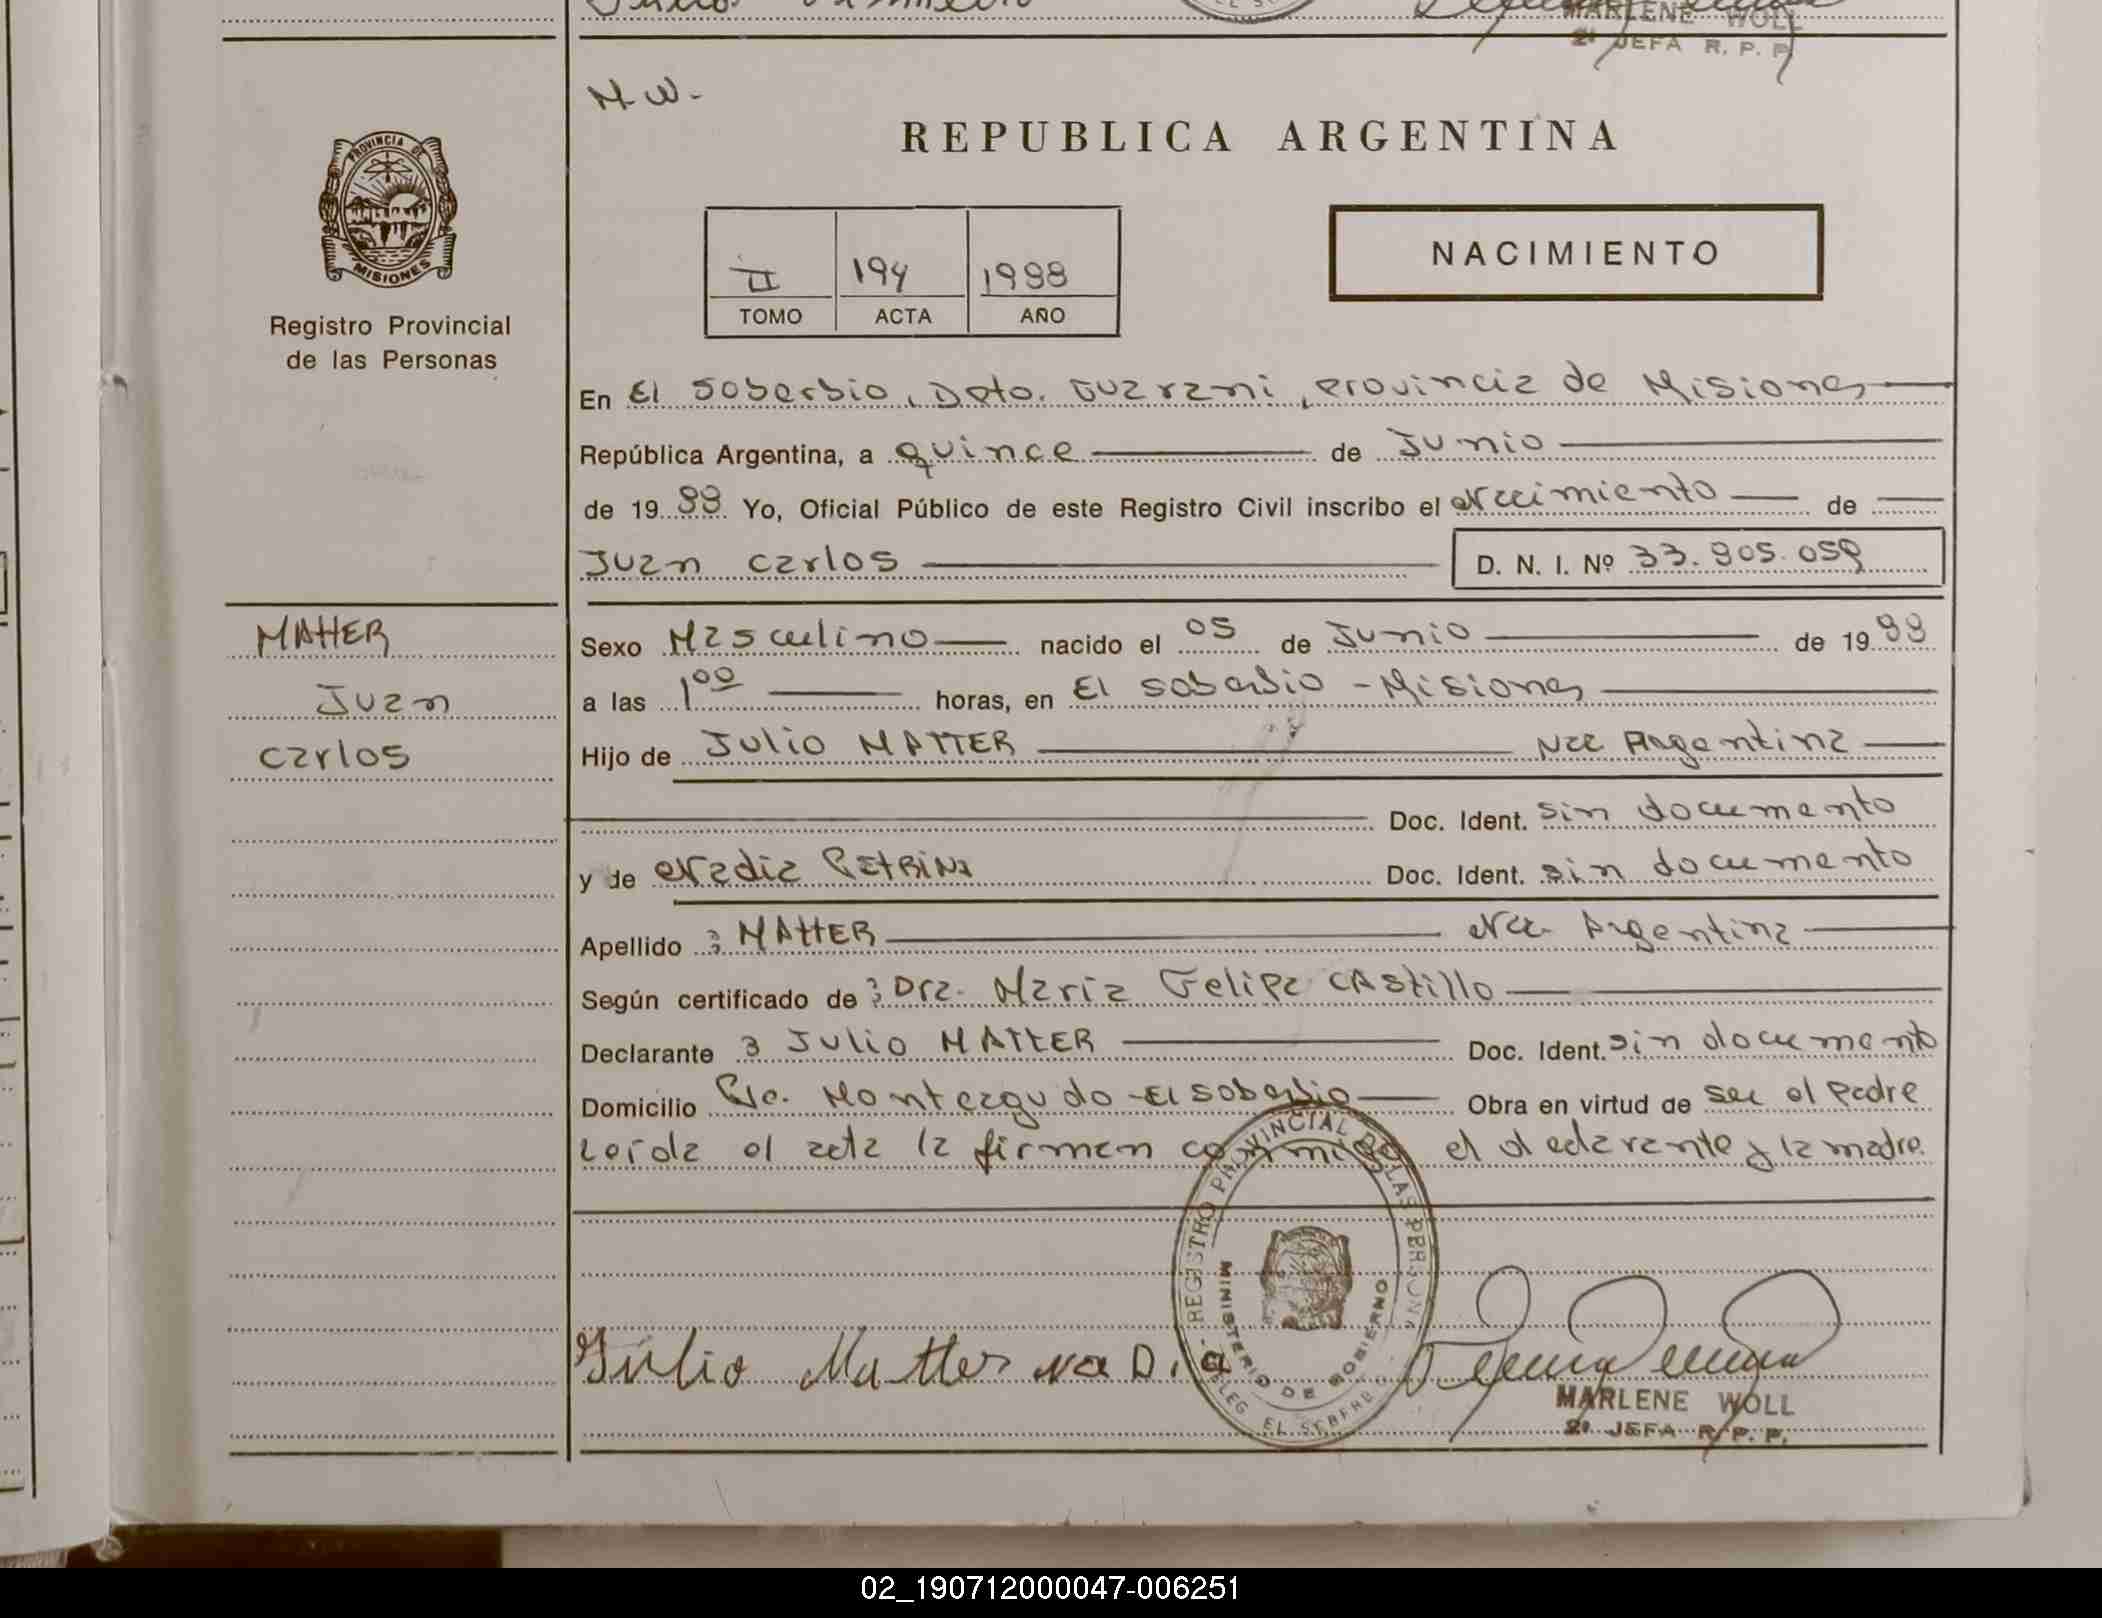 MARLENE WOLL
2ª JEFA R. P. P.
M.W.-
PROVINCIA DE MISIONES
Registro Provincial
de las Personas
REPUBLICA ARGENTINA
II 194 1988
TOMO ACTA AÑO
NACIMIENTO
En El Soberbio, Dpto. Guarani, provincia de Misiones
República Argentina, a quince de Junio
de 1988 Yo, Oficial Público de este Registro Civil inscribo el Nacimiento de
Juan Carlos D. N. I. Nº 33.905.059
MATTER
Juan
Carlos
Sexo Masculino nacido el 05 de Junio de 1988
a las 1⁰⁰ horas, en El Soberbio - Misiones
Hijo de Julio MATTER Nac Argentina
Doc. Ident. sin documento
y de Nadia PETRINA Doc. Ident. sin documento
Apellido : MATTER Nac. Argentina
Según certificado de : Dra. Maria Felipa CAStillo
Declarante : Julio MATTER Doc. Ident. sin documento
Domicilio Pje. Monteagudo - El Soberbio Obra en virtud de ser el padre
Leida el acta la firman conmigo el declarante y la madre.
REGISTRO PROVINCIAL DE LAS PERSONAS
MINISTERIO DE GOBIERNO
DELEG. EL SOBERBIO
Julio Matter NaDia
MARLENE WOLL
2ª JEFA R. P. P.
02_190712000047-006251